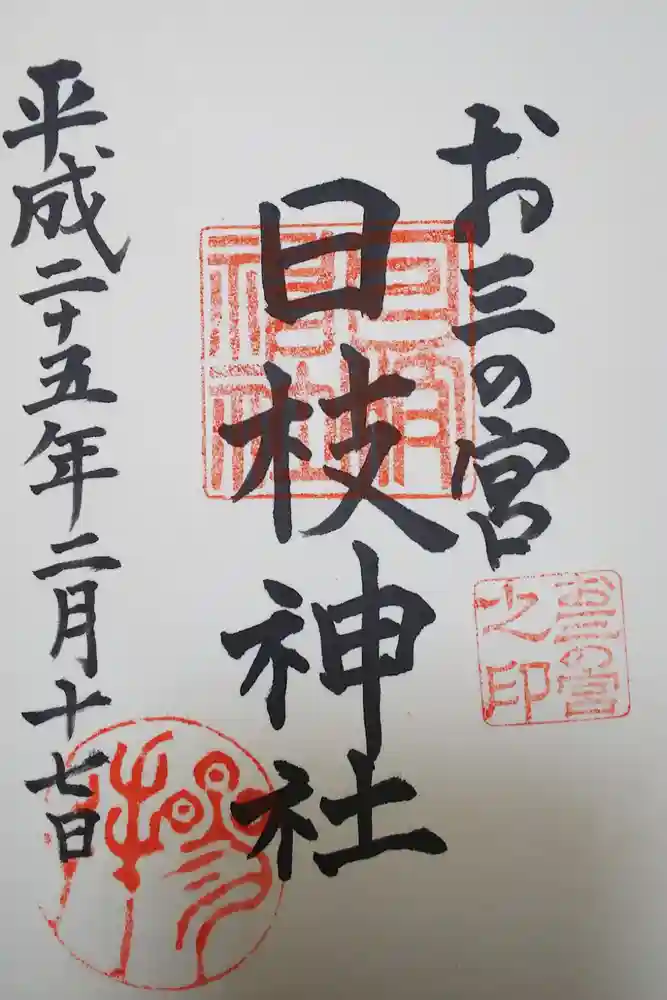 お三の宮
お三の宮之印
日枝神社
日枝神社
平成二十五年二月十七日